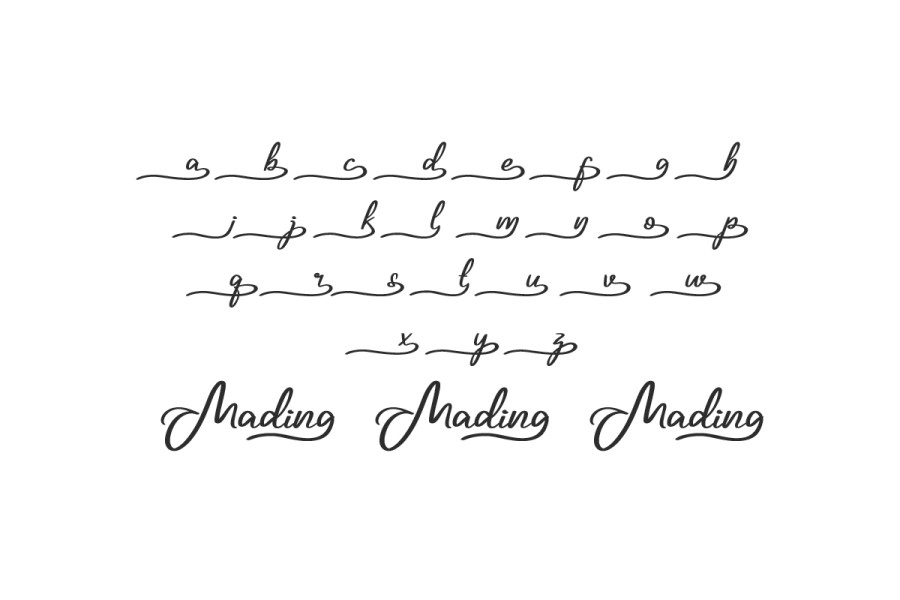 a b c d e f g h
i j k l m n o p
q r s t u v w
x y z
Mading Mading Mading